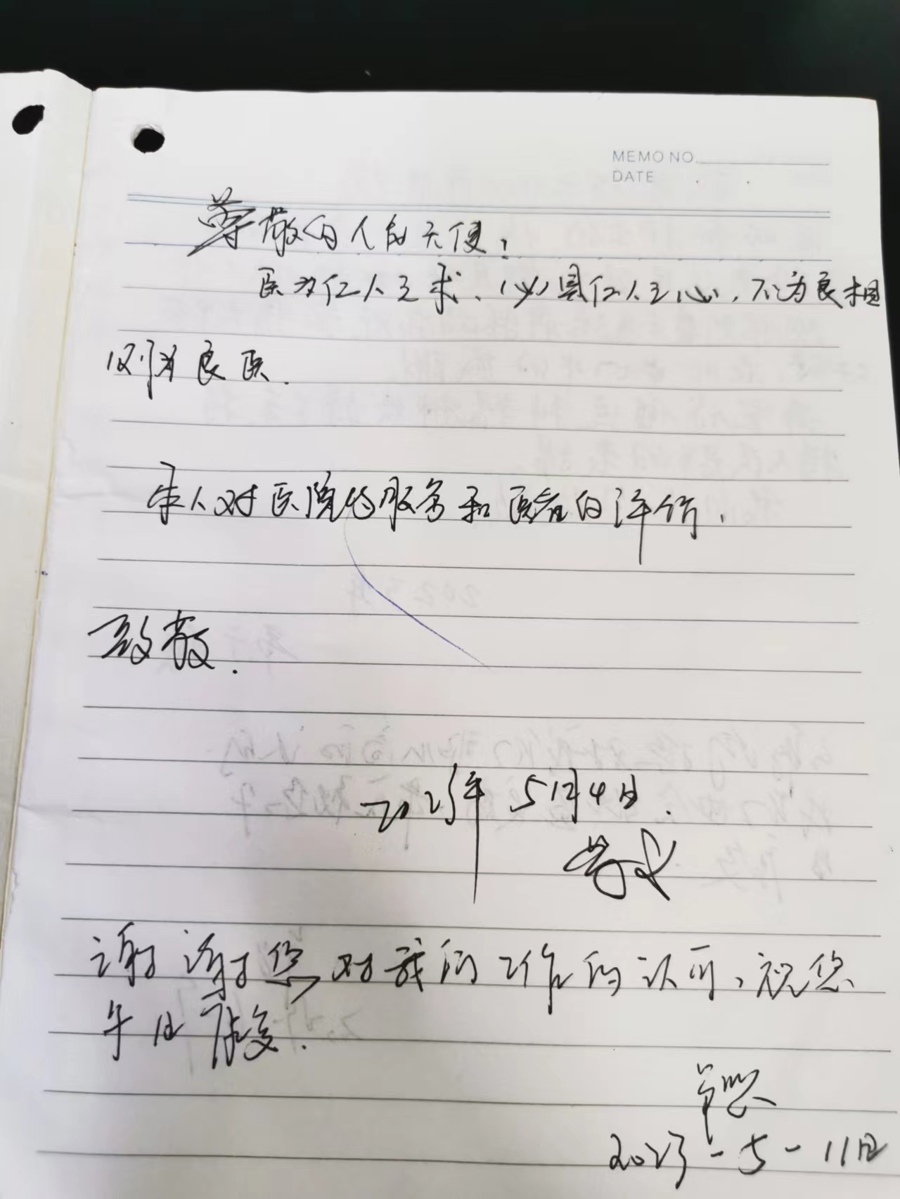 MEMO NO.
DATE
尊敬的人的天使：
医为仁人之术、必具仁人之心，不为良相
则为良医.
本人对医院的服务和医者的评价.
致敬.
2023年 5月4日.
谢谢您对我的工作的认可，祝您
早日康复.
2023-5-11日